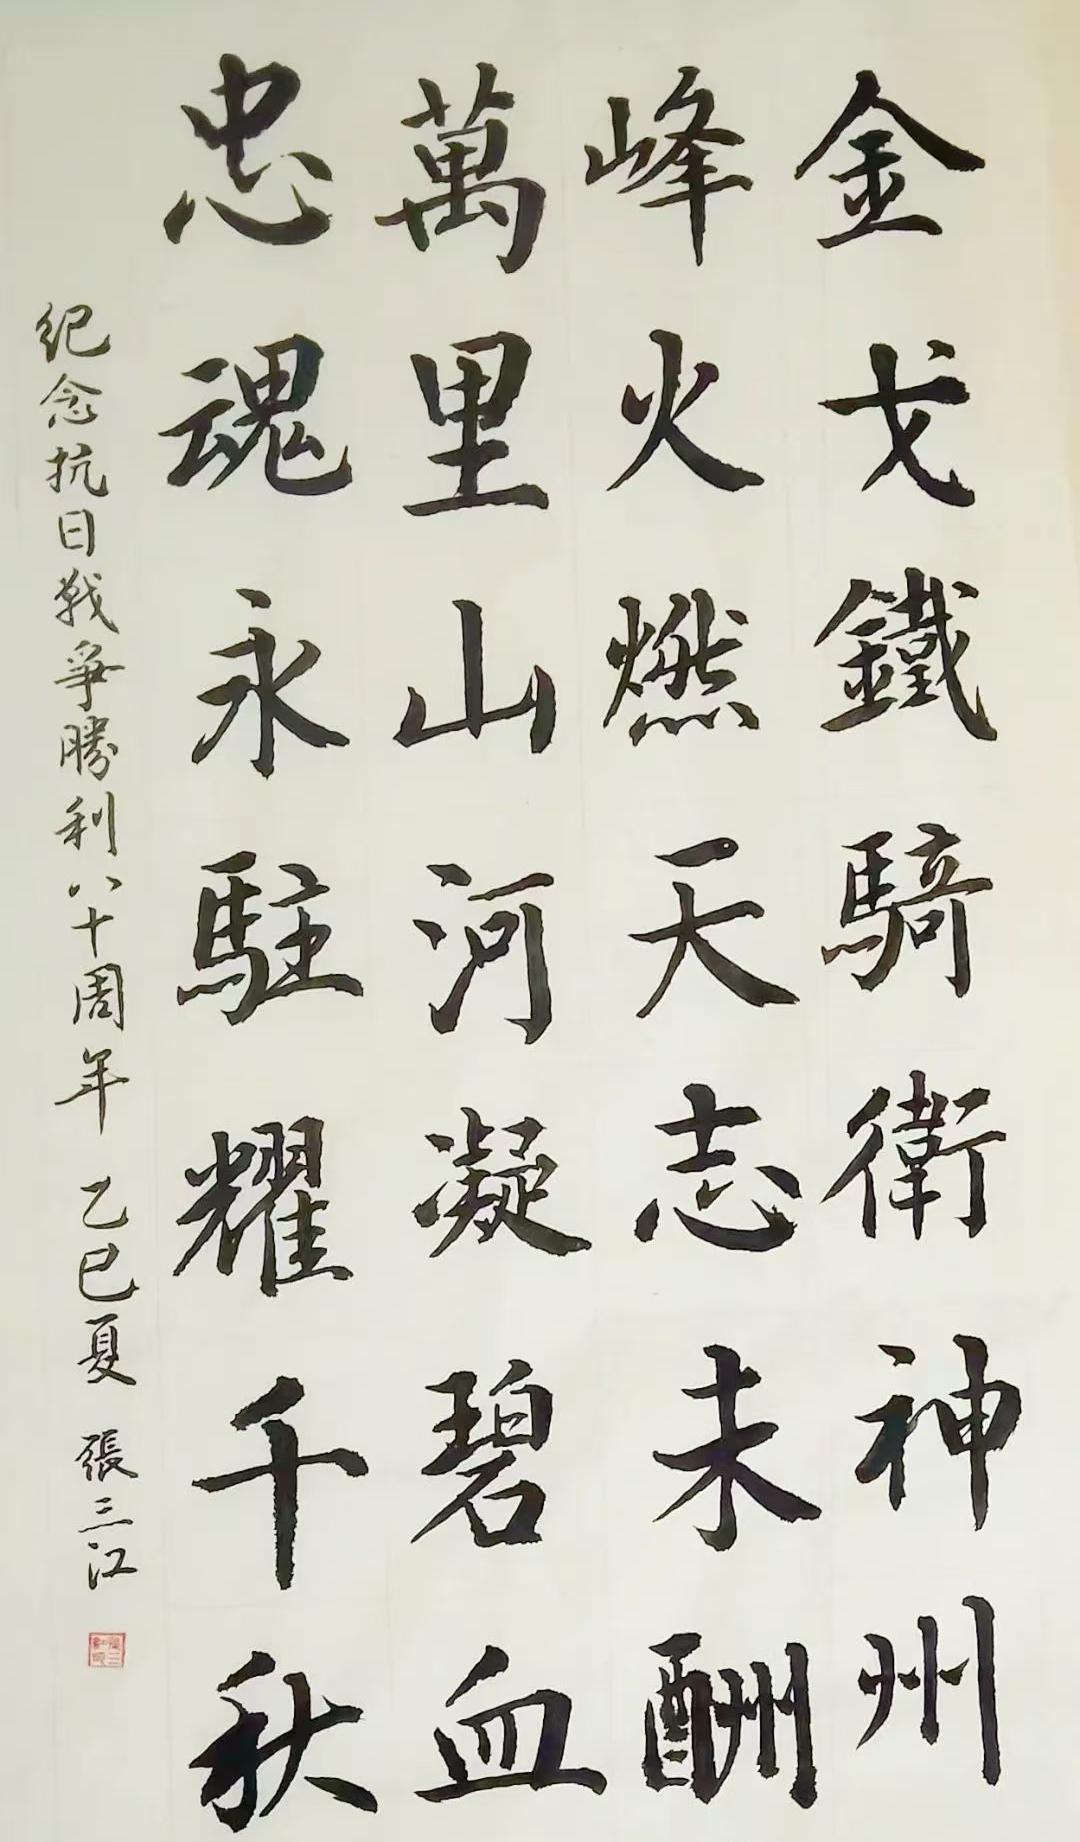 金戈鐵騎衛神州
峰火燃天志未酬
萬里山河凝碧血
忠魂永駐耀千秋
纪念抗日戰爭勝利八十周年 乙巳夏 張三江